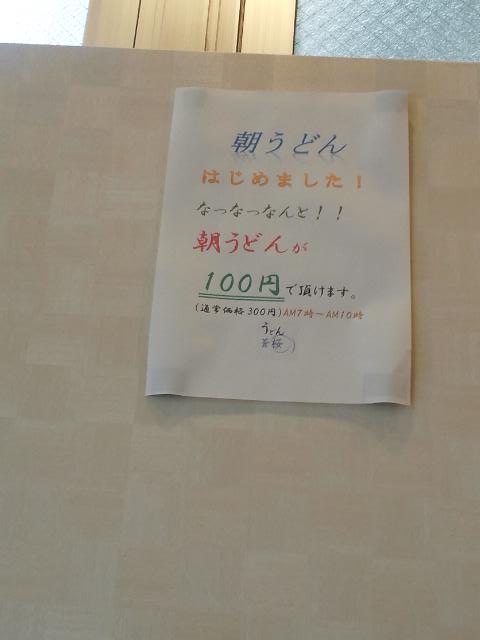 朝うどん
はじめました！
なっなっなんと！！
朝うどんが
100円で頂けます。
(通常価格300円)AM7時～AM10時
うどん
蒼桜